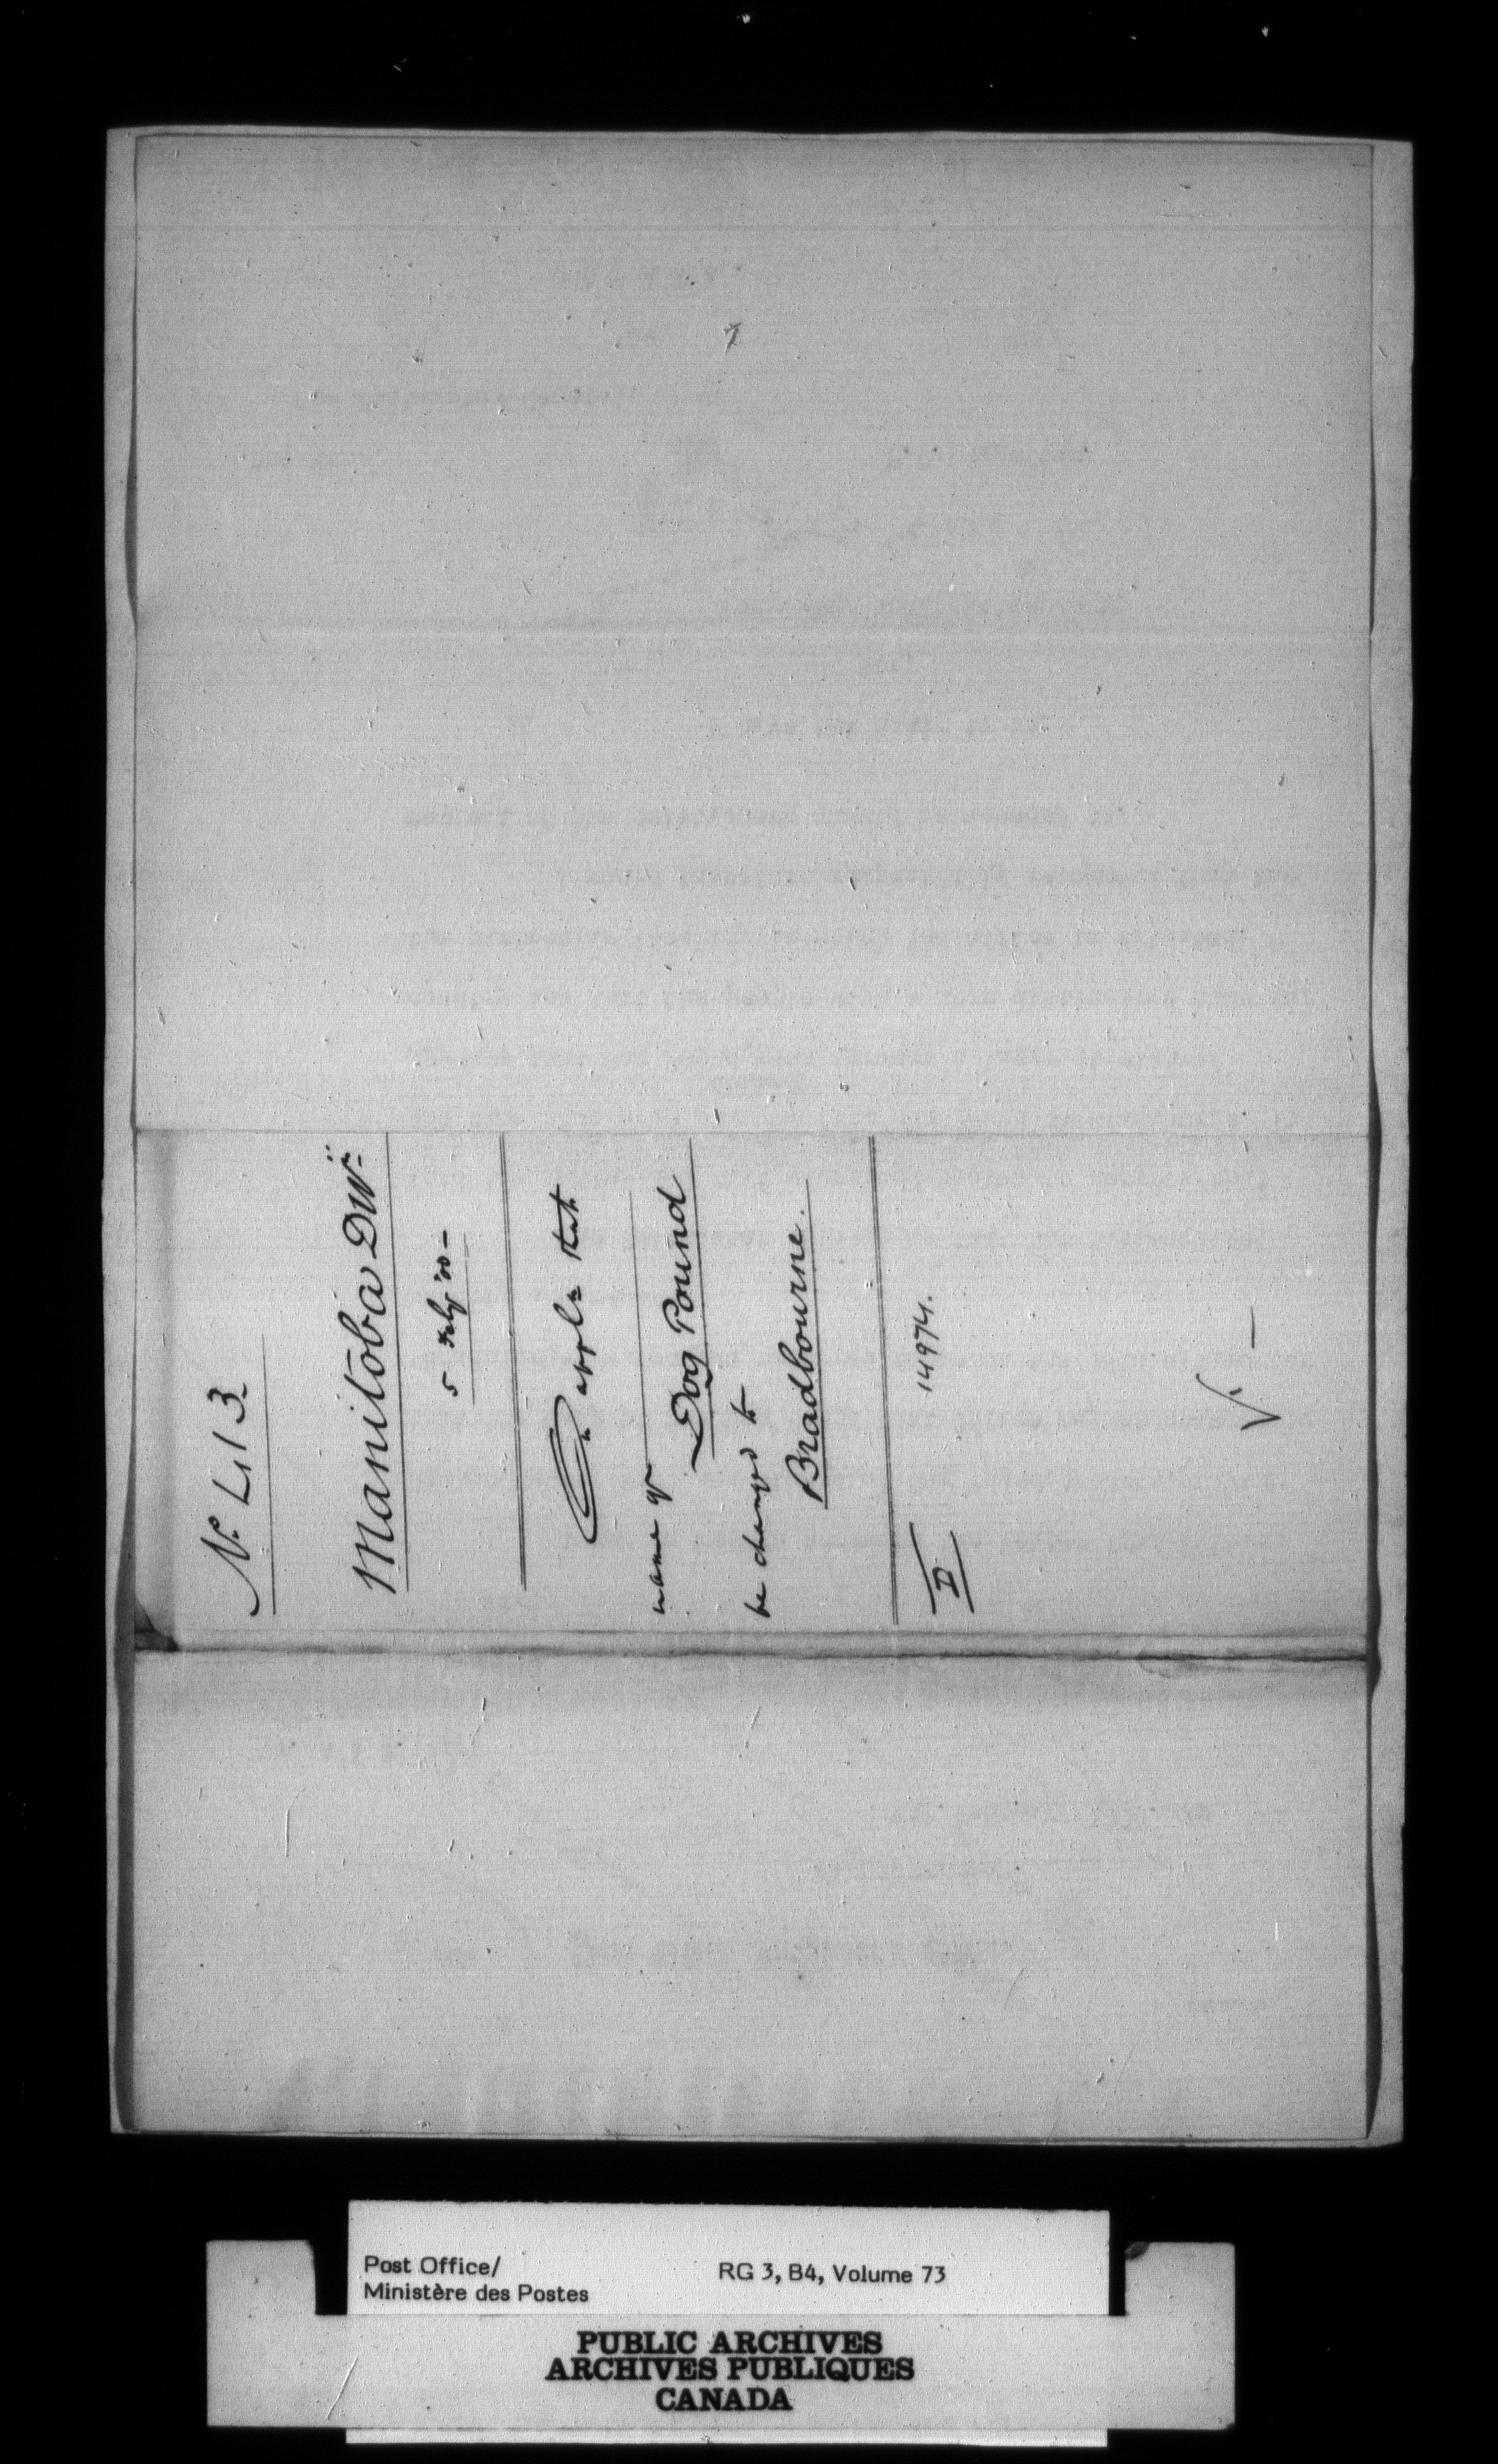 No 413
Manitoba Dn
5 Feby '00 -
On appln that
name of
Dog Pound
be changed to
Bradbourne.
D 14974.
Post Office/
Ministère des Postes
RG 3, B4, Volume 73
PUBLIC ARCHIVES
ARCHIVES PUBLIQUES
CANADA